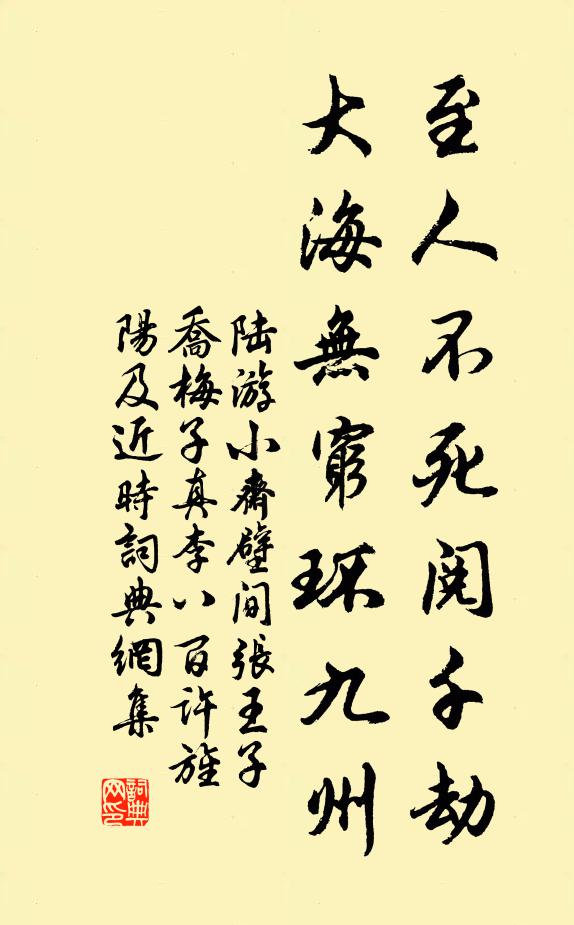 至人不死閱千劫
大海無窮環九州
陆游小齋壁间張王子
喬梅子真李八百许旌
陽及近時詞典網集
詞典網印